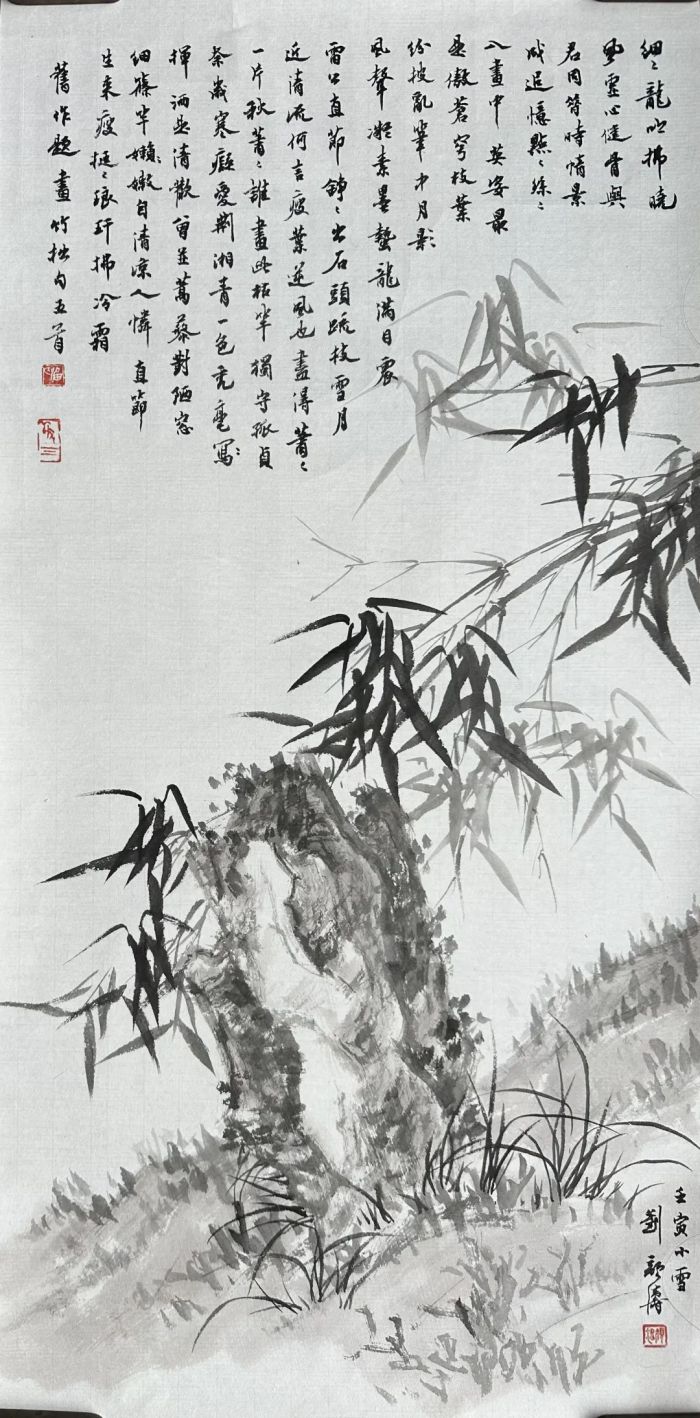 細〻龍吟拂曉
風靈心健骨與
君同當時情景
成追憶點〻綠〻
入畫中 英姿最
是傲蒼穹枝葉
紛披亂筆中月影
風聲凝素墨蟄龍滿目震
雷公直節錚〻出石頭疏枝雪月
近清流何言瘦葉逆風也盡得蕭〻
一片秋蕭〻誰畫此枯筆獨守孤貞
奈歲寒癡愛荊湘青一色禿毫寫
揮洒是清歡曾並蒿藜對陋窓
細篠竿嬾嫩自清涼人憐直節
生來瘦挺〻琅玕拂冷霜
舊作題畫竹拙句五首
壬寅小雪
劉